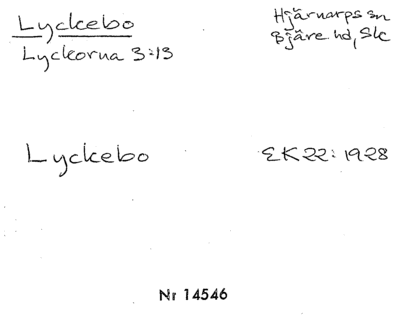 Lyckebo
Hjärnarps sn
Lyckorna 3:13
Bjäre hd, Slc
Lyckebo
EK22:1928
Nr 14546